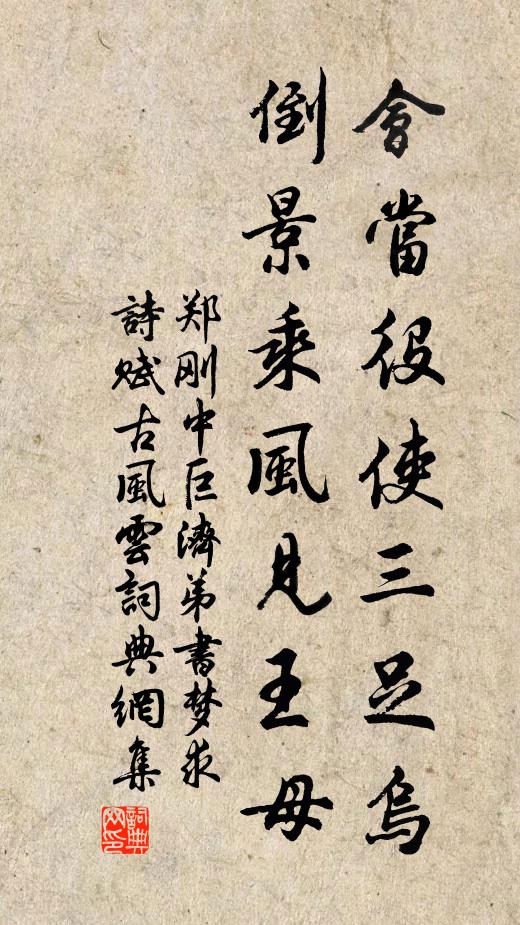 會當役使三足烏
倒景乘風見王母
郑刚中巨濟弟書梦求
詩赋古風雲詞典網集
詞典
网印